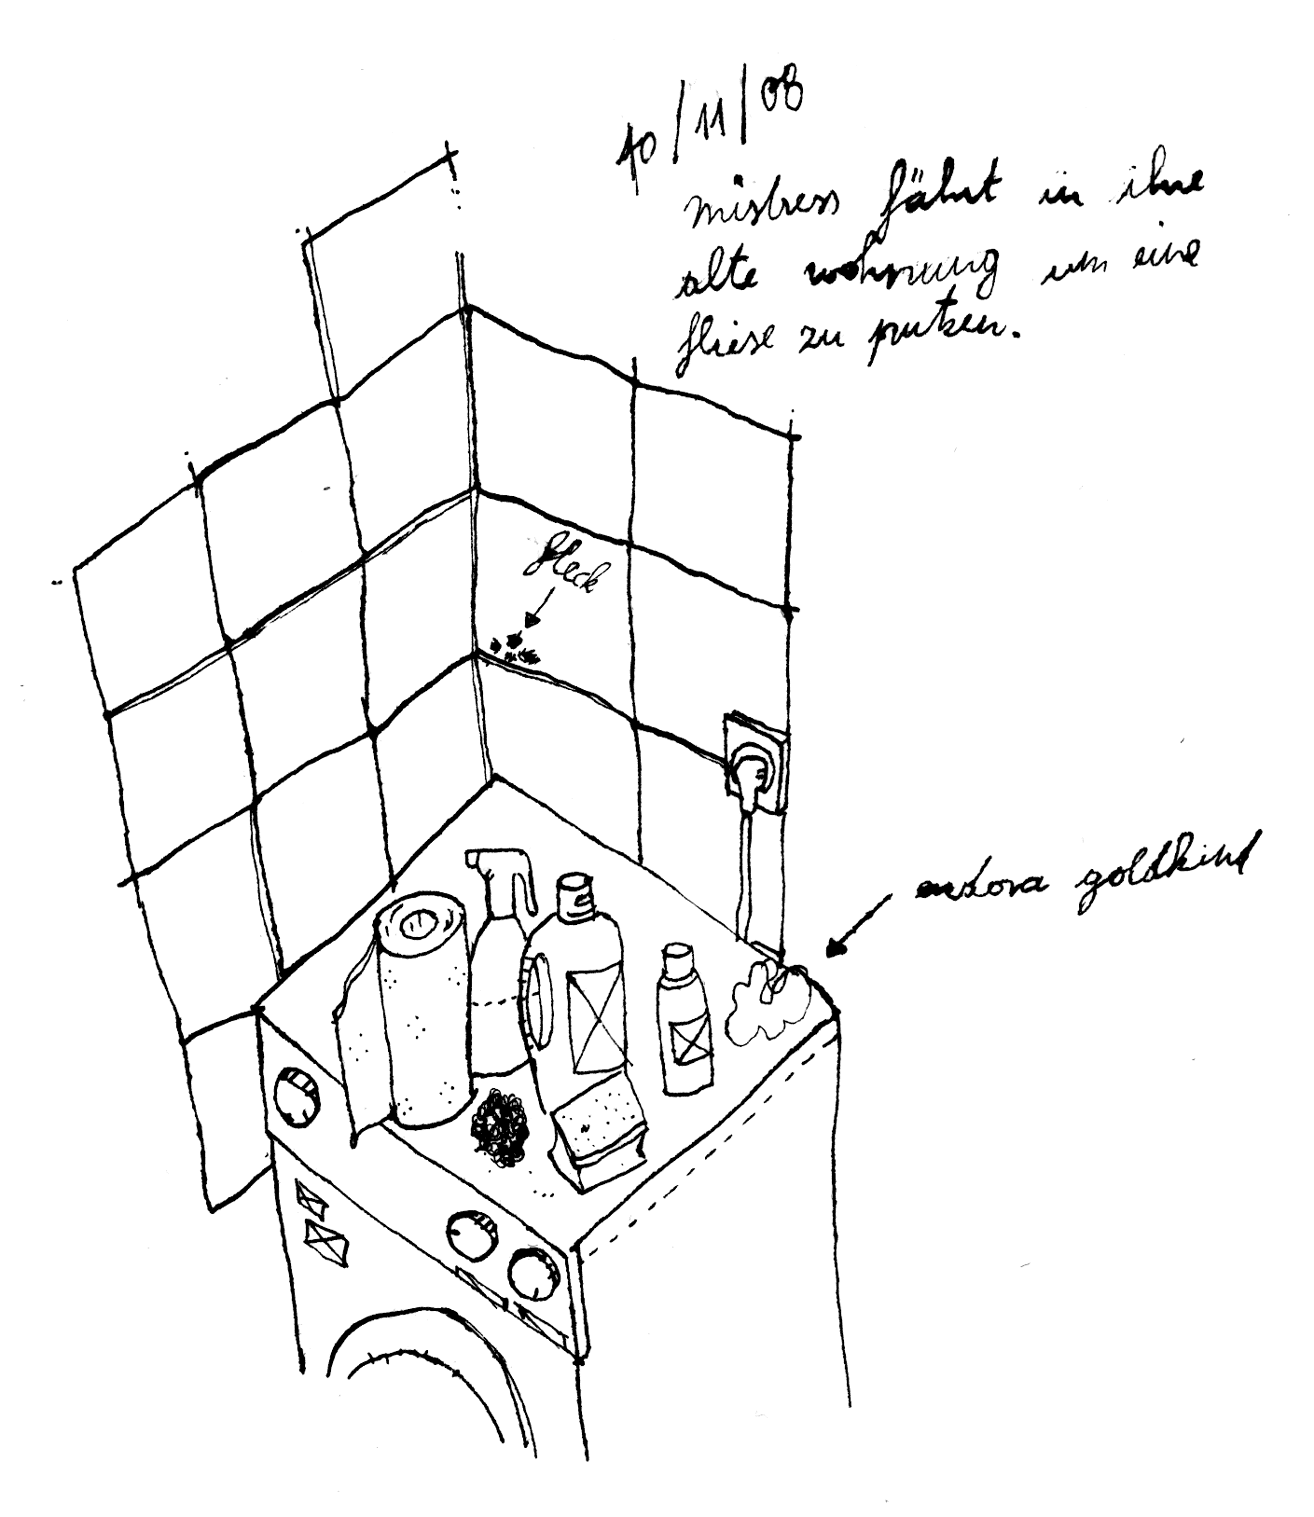 10/11/08
mistress fährt in ihre
alte wohnung um eine
fliese zu putzen.
fleck
goldkind